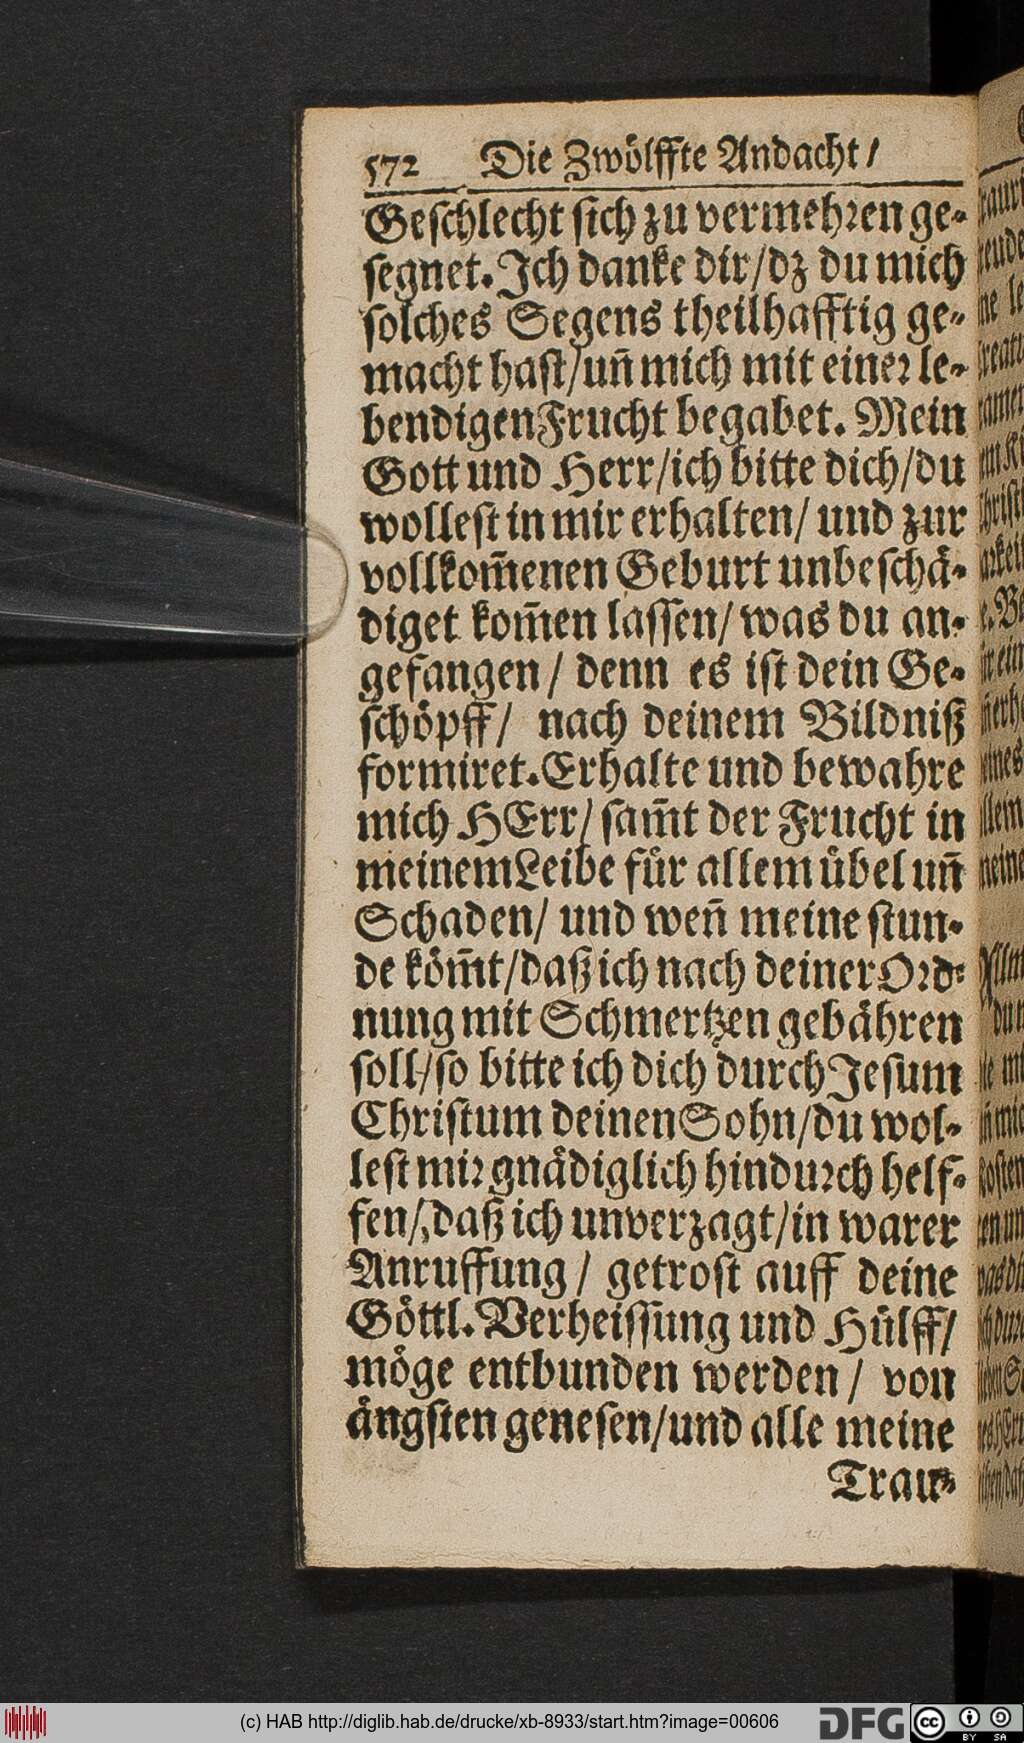 572 Die Zwölffte Andacht/
Geschlecht sich zu vermehren ge-
segnet. Ich danke dir/dz du mich
solches Segens theilhafftig ge-
macht hast/un̄ mich mit einer le-
bendigen Frucht begabet. Mein
Gott und Herr/ich bitte dich/du
wollest in mir erhalten/ und zur
vollkom̄enen Geburt unbeschä-
diget kom̄en lassen/ was du an-
gefangen/ denn es ist dein Ge-
schöpff/ nach deinem Bildniß
formiret. Erhalte und bewahre
mich HErr/ sam̄t der Frucht in
meinem Leibe für allem übel un̄
Schaden/ und wen̄ meine stun-
de köm̄t/daß ich nach deiner Ord-
nung mit Schmertzen gebähren
soll/so bitte ich dich durch Jesum
Christum deinen Sohn/du wol-
lest mir gnädiglich hindurch helf-
fen/daß ich unverzagt/in warer
Anruffung/ getrost auff deine
Göttl. Verheissung und Hülff/
möge entbunden werden/ von
ängsten genesen/und alle meine
Trau-
(c) HAB http://diglib.hab.de/drucke/xb-8933/start.htm?image=00606
DFG
cc BY SA